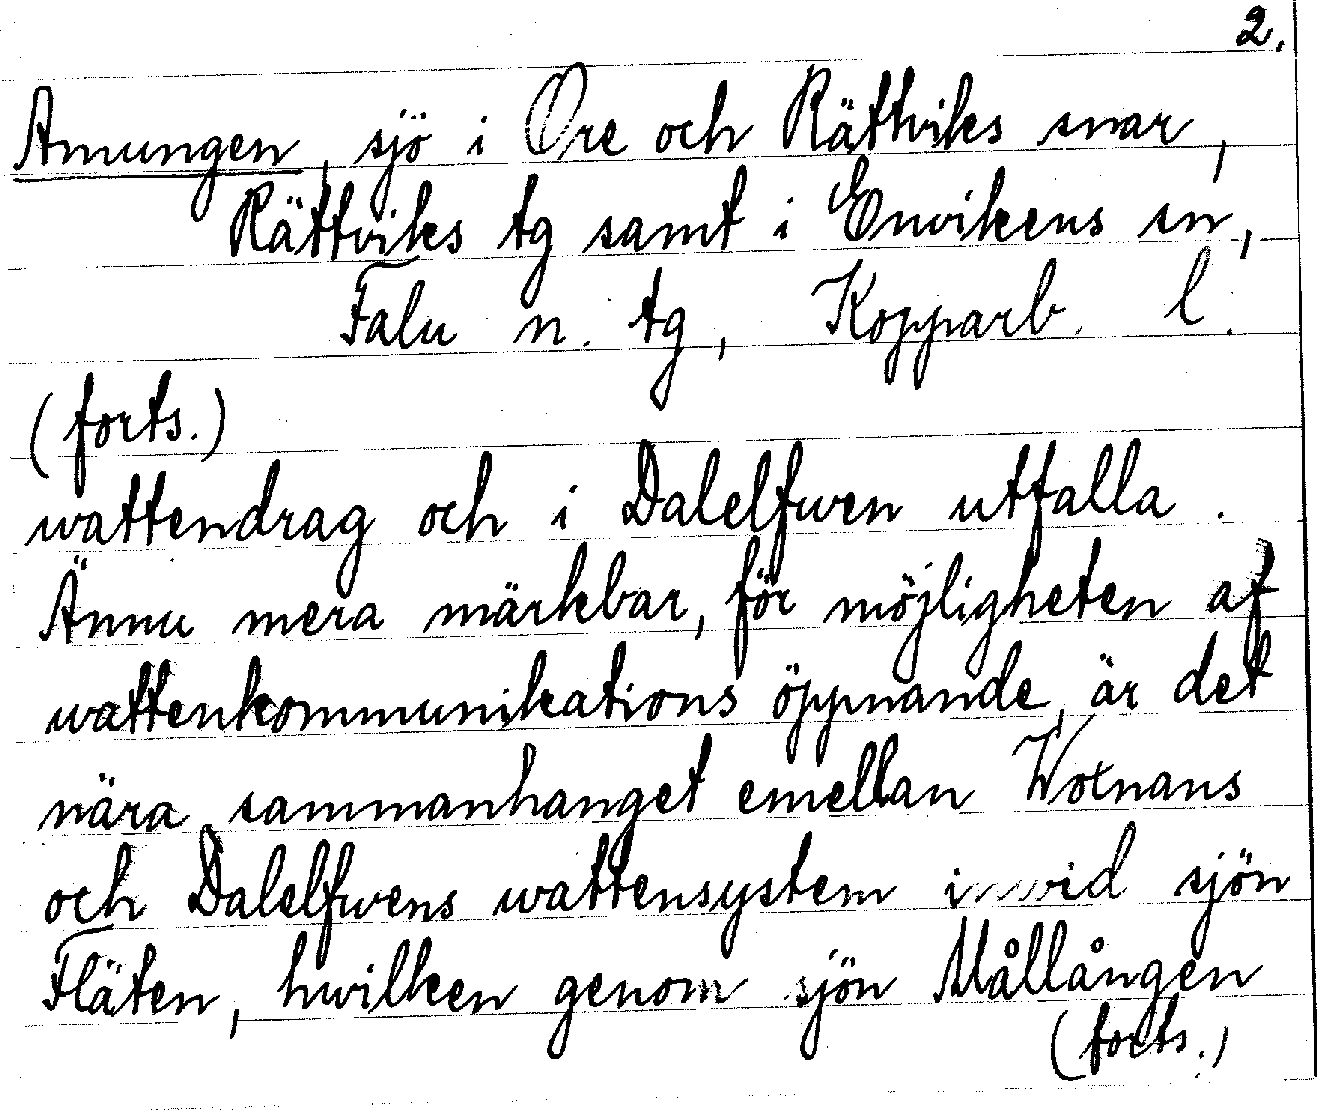 2.
Amungen, sjö i Ore och Rättviks snar,
Rättviks tg samt i Envikens sn,
Falu n. tg, Kopparb. l.
(forts.)
wattendrag och i Dalelfwen utfalla.
Ännu mera märkbar, för möjligheten af
wattenkommunikations öppnande, är det
nära sammanhanget emellan Woxnans
och Dalelfwens wattensystem inwid sjön
Fläten, hwilken genom sjön Mållången
(forts.)